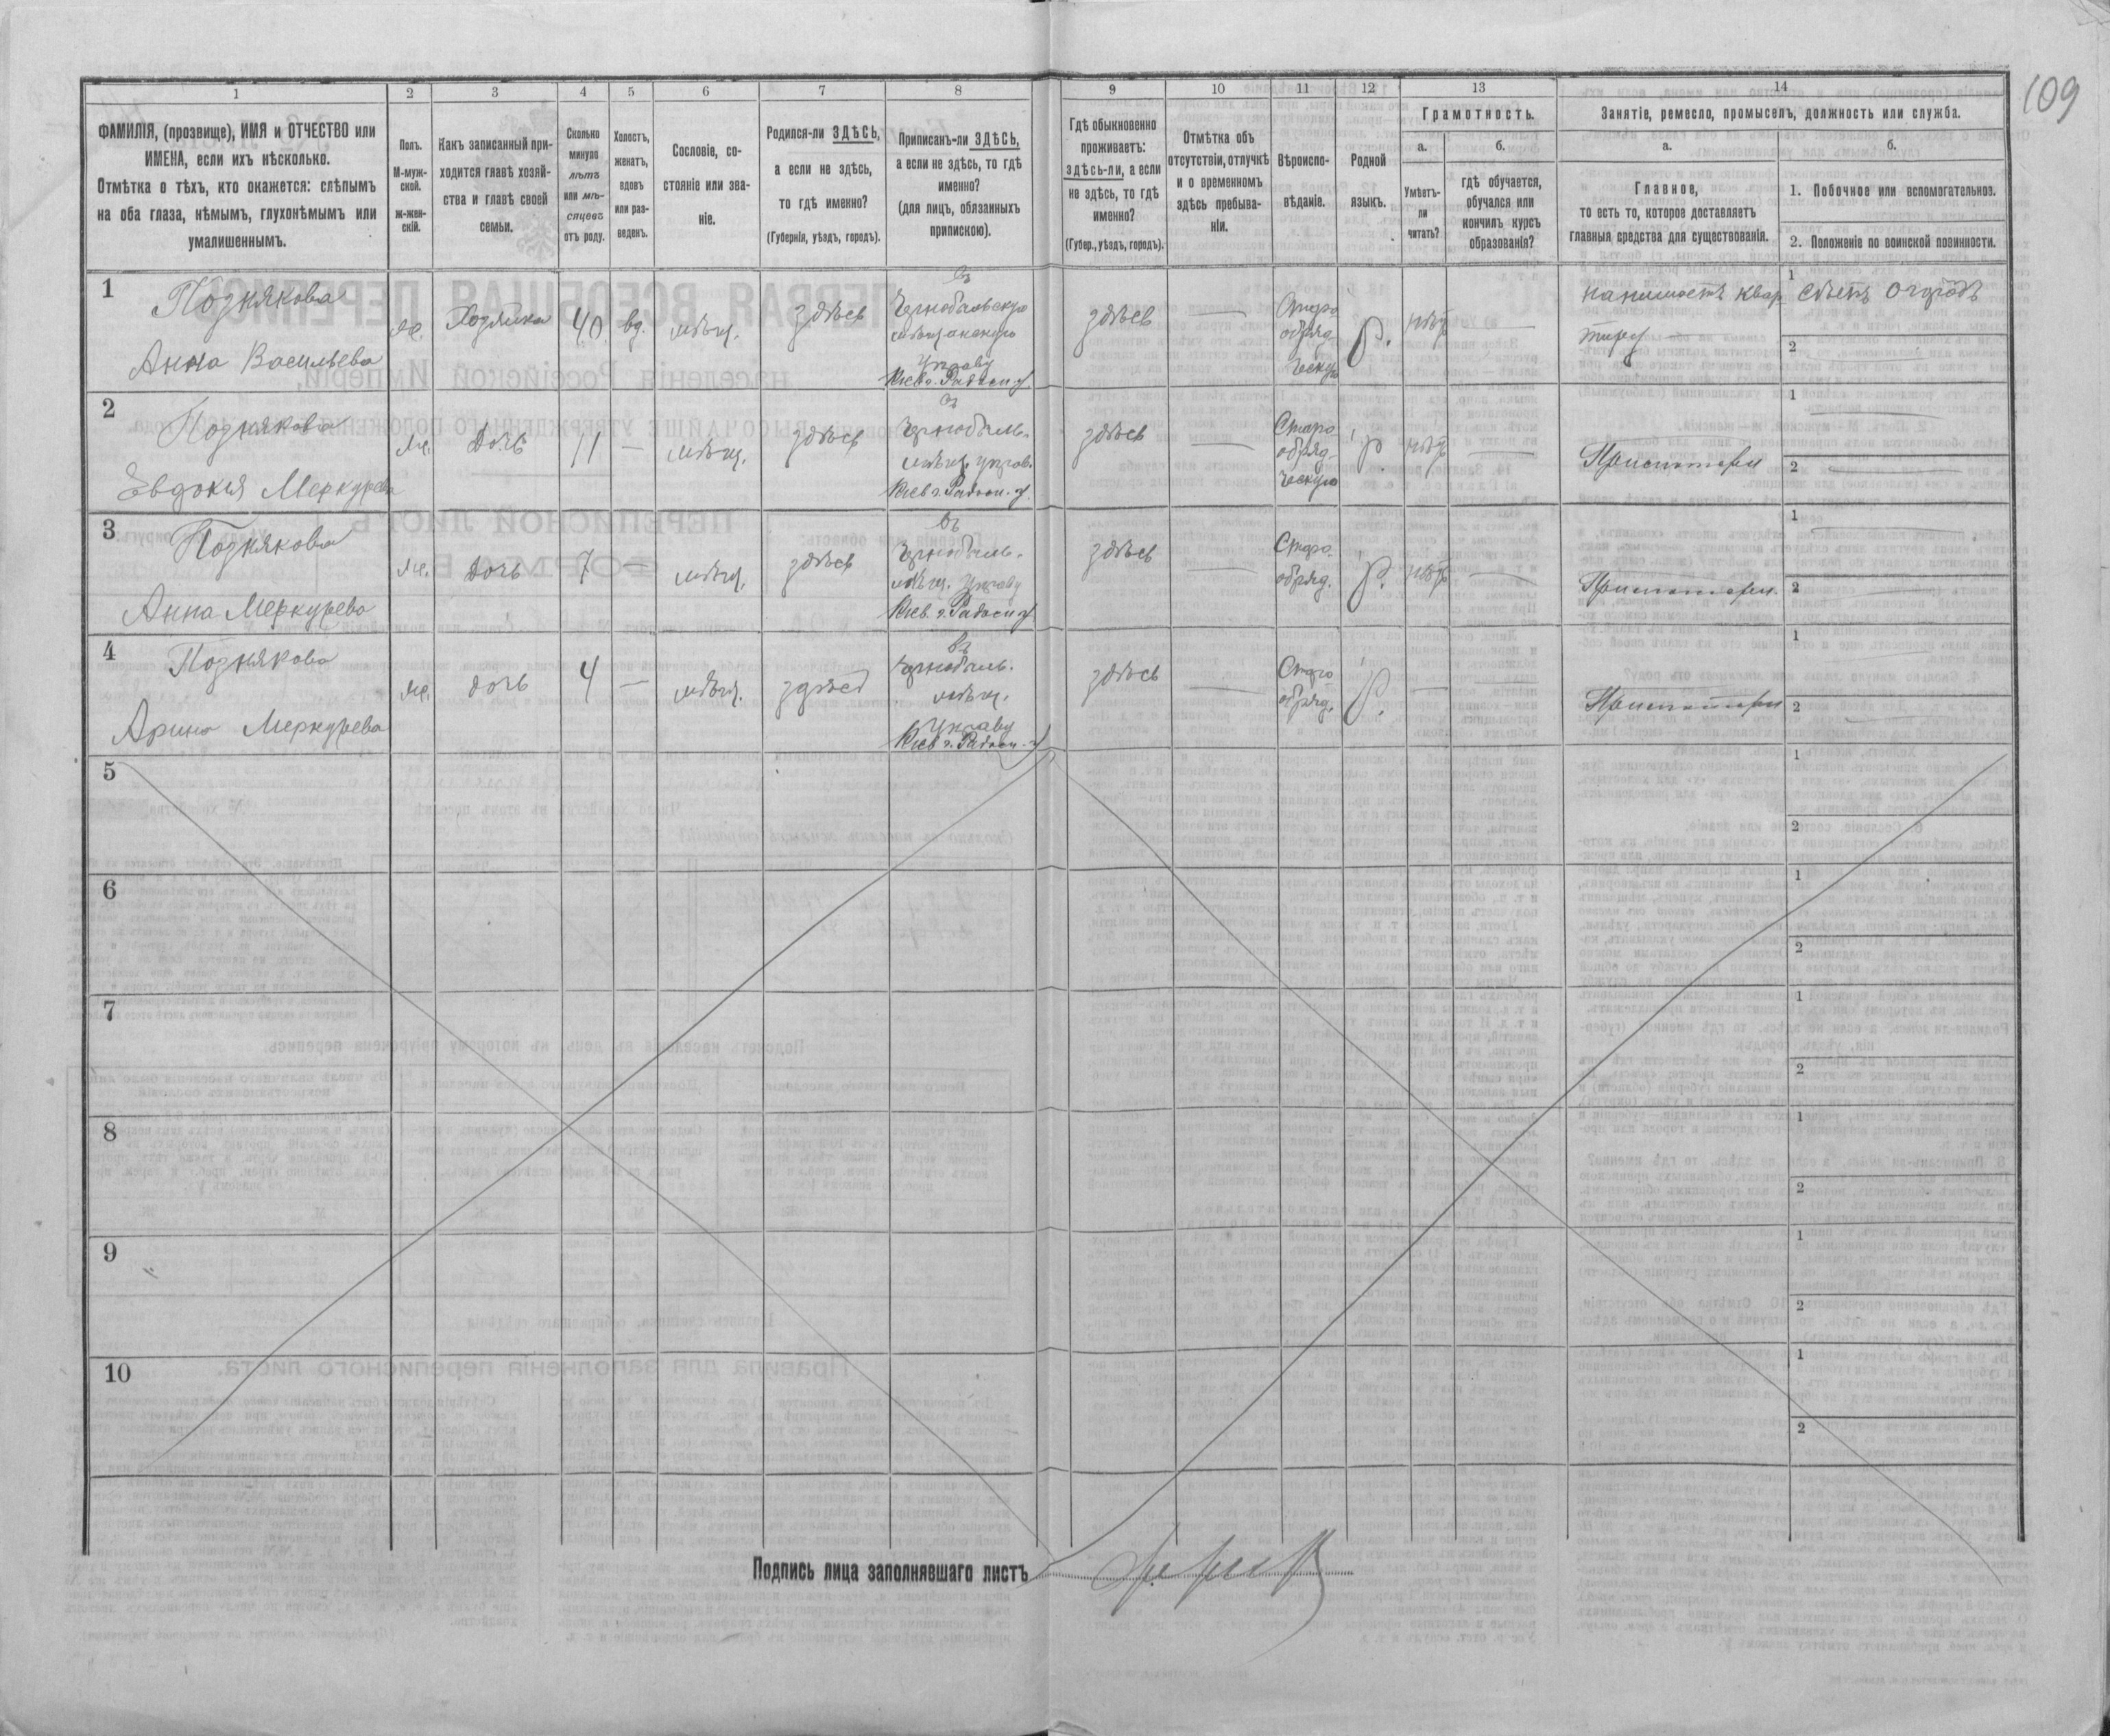 109
1
2
3
4
5
6
7
8
9
10
11
12
13
14
ФАМИЛІЯ, (прозвище), ИМЯ и ОТЧЕСТВО или
ИМЕНА, если ихъ нѣсколько.
Отмѣтка о тѣхъ, кто окажется: слѣпымъ
на оба глаза, нѣмымъ, глухонѣмымъ или
умалишеннымъ.
Полъ.
М-муж-
ской.
ж-жен-
скій.
Какъ записанный при-
ходится главѣ хозяй-
ства и главѣ своей
семьи.
Сколько
минуло
лѣтъ
или мѣ-
сяцевъ
отъ роду.
Холостъ,
женатъ,
вдовъ
или раз-
веденъ.
Сословіе, со-
стояніе или зва-
ніе.
Родился-ли ЗДѢСЬ,
а если не здѣсь,
то гдѣ именно?
(Губернія, уѣздъ, городъ).
Приписанъ-ли ЗДѢСЬ,
а если не здѣсь, то гдѣ
именно?
(для лицъ, обязанныхъ
припискою).
Гдѣ обыкновенно
проживаетъ:
здѣсь-ли, а если
не здѣсь, то гдѣ
именно?
(Губер., уѣздъ, городъ).
Отмѣтка объ
отсутствіи, отлучкѣ
и о временномъ
здѣсь пребыва-
ніи.
Вѣроиспо-
вѣданіе.
Родной
языкъ.
Грамотность.
а.
Умѣетъ-
ли
читать?
б.
гдѣ обучается,
обучался или
кончилъ курсъ
образованія?
Занятіе, ремесло, промыселъ, должность или служба.
а.
Главное,
то есть то, которое доставляетъ
главныя средства для существованія.
б.
1. Побочное или вспомогательное.
2. Положеніе по воинской повинности.
1
Позднякова
Анна Васильева
ж.
Хозяйка
40
вд.
мѣщ.
здѣсь
въ
Чернобыльскую
мѣщанскую
Управу
Кіев. г. Радом. у.
здѣсь
—
Старо
обряд
ческую
р.
нѣтъ
—
1
2
2
Позднякова
Евдокія Меркурьева
ж.
Дочь
11
—
мѣщ.
здѣсь
въ
Чернобыль.
мѣщ. управ.
Кіев г. Радом. у.
здѣсь
—
Старо
обряд-
ческую
р.
нѣтъ
—
1
2
3
Позднякова
Анна Меркурьева
ж.
Дочь
7
—
мѣщ.
здѣсь
въ
Чернобыль.
мѣщ. Управу
Кіев. г. Радом. у.
здѣсь
—
Старо-
обряд.
р.
нѣтъ
—
1
2
4
Позднякова
Арина Меркурьева
ж.
дочь
4
—
мѣщ.
здѣсь
въ
Чернобыль.
мѣщ.
Управу
Кіев г. Радом. у.
здѣсь
—
Старо
обряд.
р.
—
1
2
5
1
2
6
1
2
7
1
2
8
1
2
9
1
2
10
1
2
Подпись лица заполнявшаго листъ